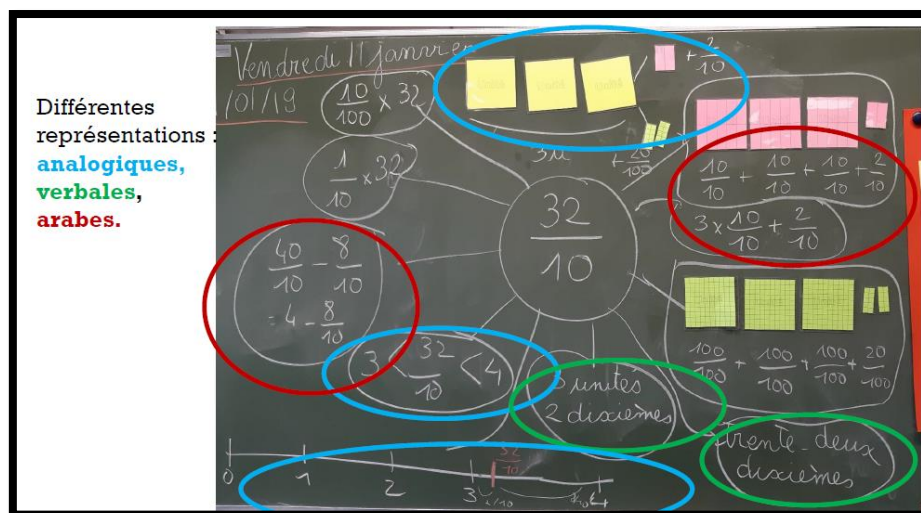 Différentes
représentations :
analogiques,
verbales,
arabes.
Vendredi 11 janvier
/01/19
10/100 × 32
1/10 × 32
40/10 - 8/10
= 4 - 8/10
3 < 32/10 < 4
3u
+ 2/10
+ 20/100
32/10
10/10 + 10/10 + 10/10 + 2/10
3 × 10/10 + 2/10
100/100 + 100/100 + 100/100 + 20/100
3 unités
2 dixièmes
trente-deux
dixièmes
32/10
0 1 2 3 4